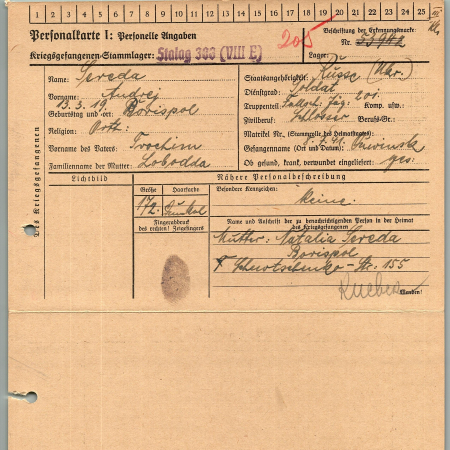 1 2 3 4 5 6 7 8 9 10 11 12 13 14 15 16 17 18 19 20 21 22 23 24 25
Personalkarte I: Personelle Angaben
Kriegsgefangenen-Stammlager: Stalag 308 (VIII E)
205
Beschriftung der Erkennungsmarke:
Nr.
Lager:
Des Kriegsgefangenen
Name: Sereda
Vorname: Andrej
Geburtstag und -ort: 13.3.19. Borispol
Religion: Orth.
Vorname des Vaters: Trochim
Familienname der Mutter: Lobodda
Staatsangehörigkeit: Russe (Ukr.)
Dienstgrad: Soldat
Truppenteil: 201. Komp. usw.
Zivilberuf: Schlosser Berufs-Gr.:
Matrikel Nr. (Stammrolle des Heimatstaates):
Gefangennahme (Ort und Datum): 8.7.41.
Ob gesund, krank, verwundet eingeliefert: ges.
Lichtbild
Nähere Personalbeschreibung
Größe
Haarfarbe
172. dunkel
Besondere Kennzeichen:
keine.
Fingerabdruck
des rechten! Zeigefingers
Name und Anschrift der zu benachrichtigenden Person in der Heimat
des Kriegsgefangenen
Mutter: Natalia Sereda
Borispol
Schewtschenko-Str. 155
Wenden!